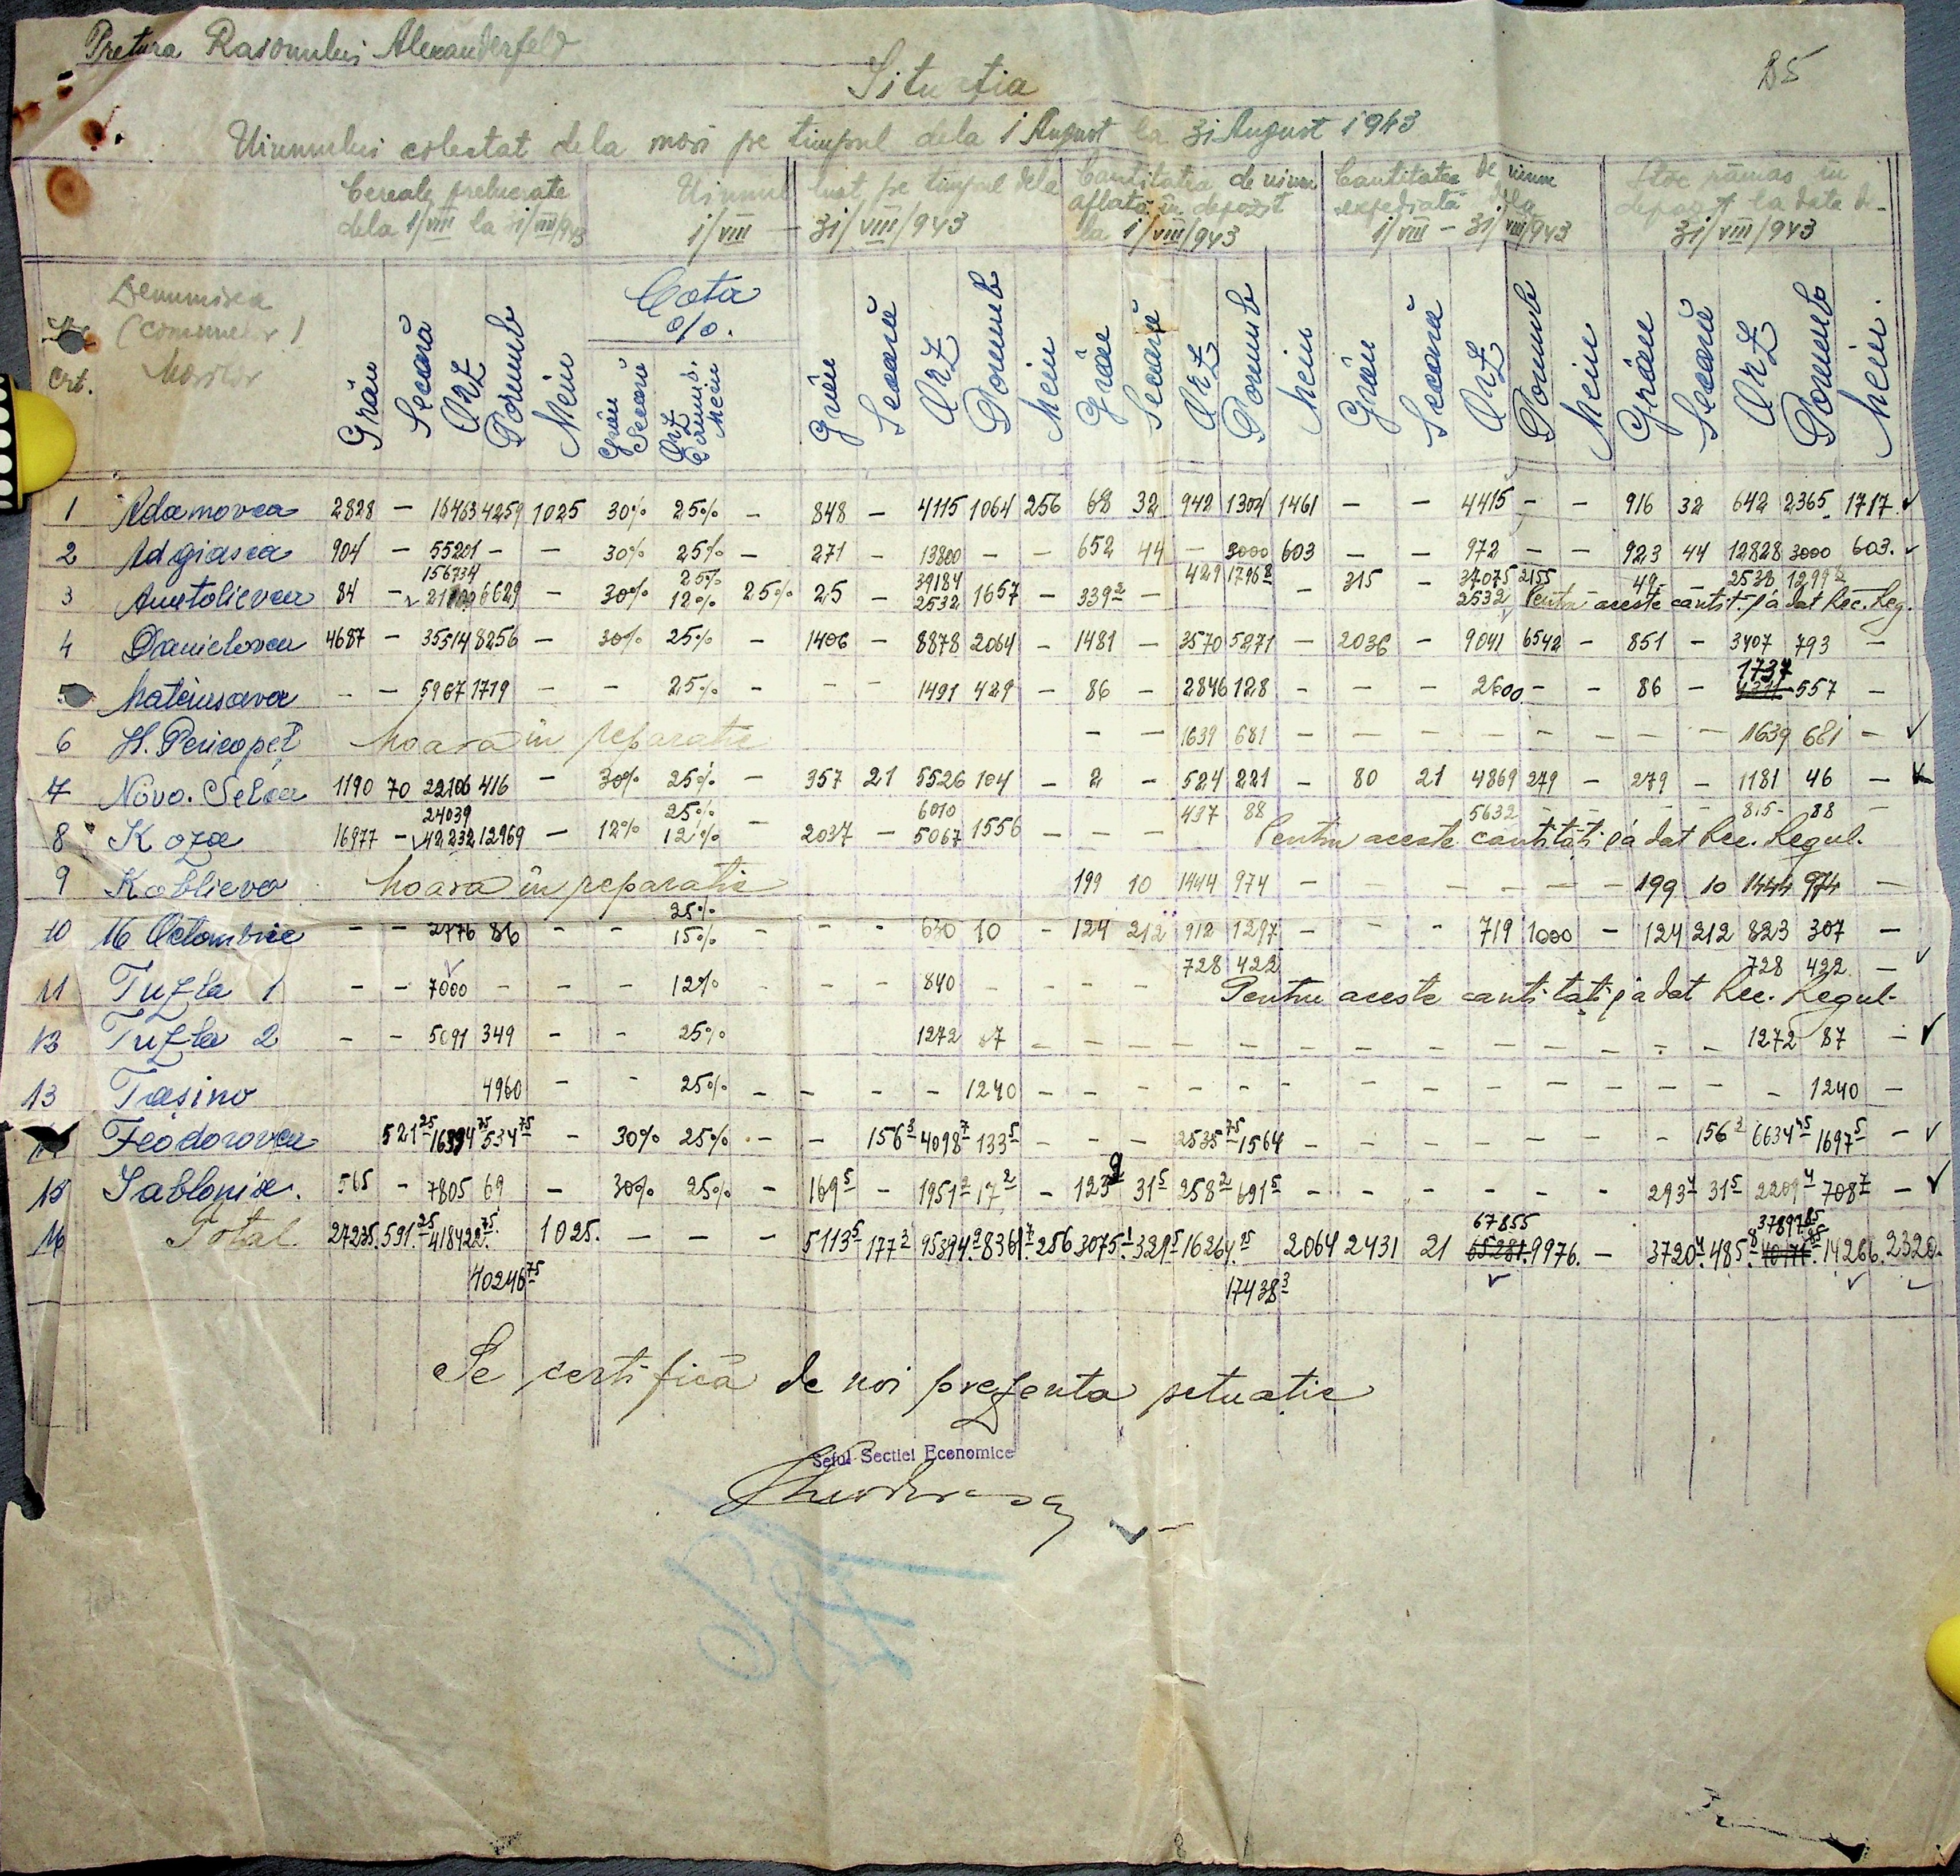 Pretura Raionului Alexanderfeld
B5
Situația
Uiumului colectat dela mori pe timpul dela 1 August la 31 August 1943
Cereale prelucrate dela 1/VIII la 31/VIII/943
Uiumul luat pe timpul dela 1/VIII – 31/VIII/943
Cantitatea de uium aflată în depozit la 1/VIII/943
Cantitatea de uium expediată dela 1/VIII – 31/VIII/943
Stoc rămas în depozit la data de 31/VIII/943
crt. Denumirea (comunelor) Morilor
Cota %.
Grâu Secară Orz Porumb Mein Grâu Secară Orz Porumb. Mein Grâu Secară Orz Porumb Mein Grâu Secară Orz Porumb Mein Grâu Secară Orz Porumb Mein Grâu Secară Orz Porumb Mein.
1 Adamovca 2828 – 16463 4259 1025 30% 25% – 848 – 4115 1064 256 68 32 942 1301 1461 – – 4415 – – 916 32 642 2365 1717
2 Adgiasca 904 – 55201 – – 30% 25% – 271 – 13800 – – 652 44 – 3000 603 – – 972 – – 923 44 12828 3000 603.
156734 25% 39184 429 1796 8 37075 2155 49 – – 2538 1299 2
3 Anatolievca 84 – 6629 – 30% 12% 25% 25 – 2532 1657 – 339 2 – – 315 – 2532 Pentru aceste cantit. s'a dat Rec. Reg.
4 Danielovca 4687 – 35514 8256 – 30% 25% – 1406 – 8878 2064 – 1481 – 3570 5271 – 2036 – 9041 6542 – 851 – 3407 793 –
1737
5 Mateiusava – – 5967 1719 – – 25% – – – 1491 429 – 86 – 2846 128 – – – 2600 – – 86 – 557 –
6 Moara în reparație – – 1639 681 – – – – – – – – 1639 681 –
7 Novo. Selca 1190 70 22106 416 – 30% 25% – 357 21 5526 104 – 2 – 524 221 – 80 21 4869 279 – 279 – 1181 46 –
24039 25% 6010 437 88 5632 – – – – 815 – 88 –
8 Koza 16977 – 42232 12969 – 12% 12% – 2037 – 5067 1556 – – – Pentru aceste cantități s'a dat Rec. Regul.
9 Koblievo Moara în reparație 199 10 1444 974 – – – – – – 199 10 1444 974 –
25%
10 16 Octombrie – – 2776 86 – – 15% – – – 630 10 – 124 212 912 1297 – – – 719 1000 – 124 212 823 307 –
728 422 728 422 –
11 Tuzla 1 – – 7000 – – – 12% – – – 840 – – – – Pentru aceste cantități s'a dat Rec. Regul.
12 Tuzla 2 – – 5091 349 – – 25% 1272 7 – – – – – – – – – – – – – 1272 87 –
13 Tașino 4960 – – 25% – – – – 1240 – – – – – – – – – – – – – – 1240 –
Feodorovca 521 25 16394 75 534 75 – 30% 25% – – 156 3 4098 7 133 5 – – – 2535 75 1564 – – – – – – – 156 3 6634 45 1697 5 –
15 Iablonia. 565 – 7805 69 – 30% 25% – 169 5 – 1951 2 17 2 – 123 9 31 5 258 2 691 5 – – – – – – 293 4 31 5 2209 4 708 7 –
67855 37897 85
16 Total. 27235. 591. 25 418422 75 1025. – – – 5113 5 177 3 95394 9 8361 7 256 3075. 1 329 5 16264. 95 2064 2431 21 65287. 9976. – 3720 4 485. 8 14266. 2320.
40246 75 17438 3
Se certifică de noi prezenta situație
Șeful Secției Economice